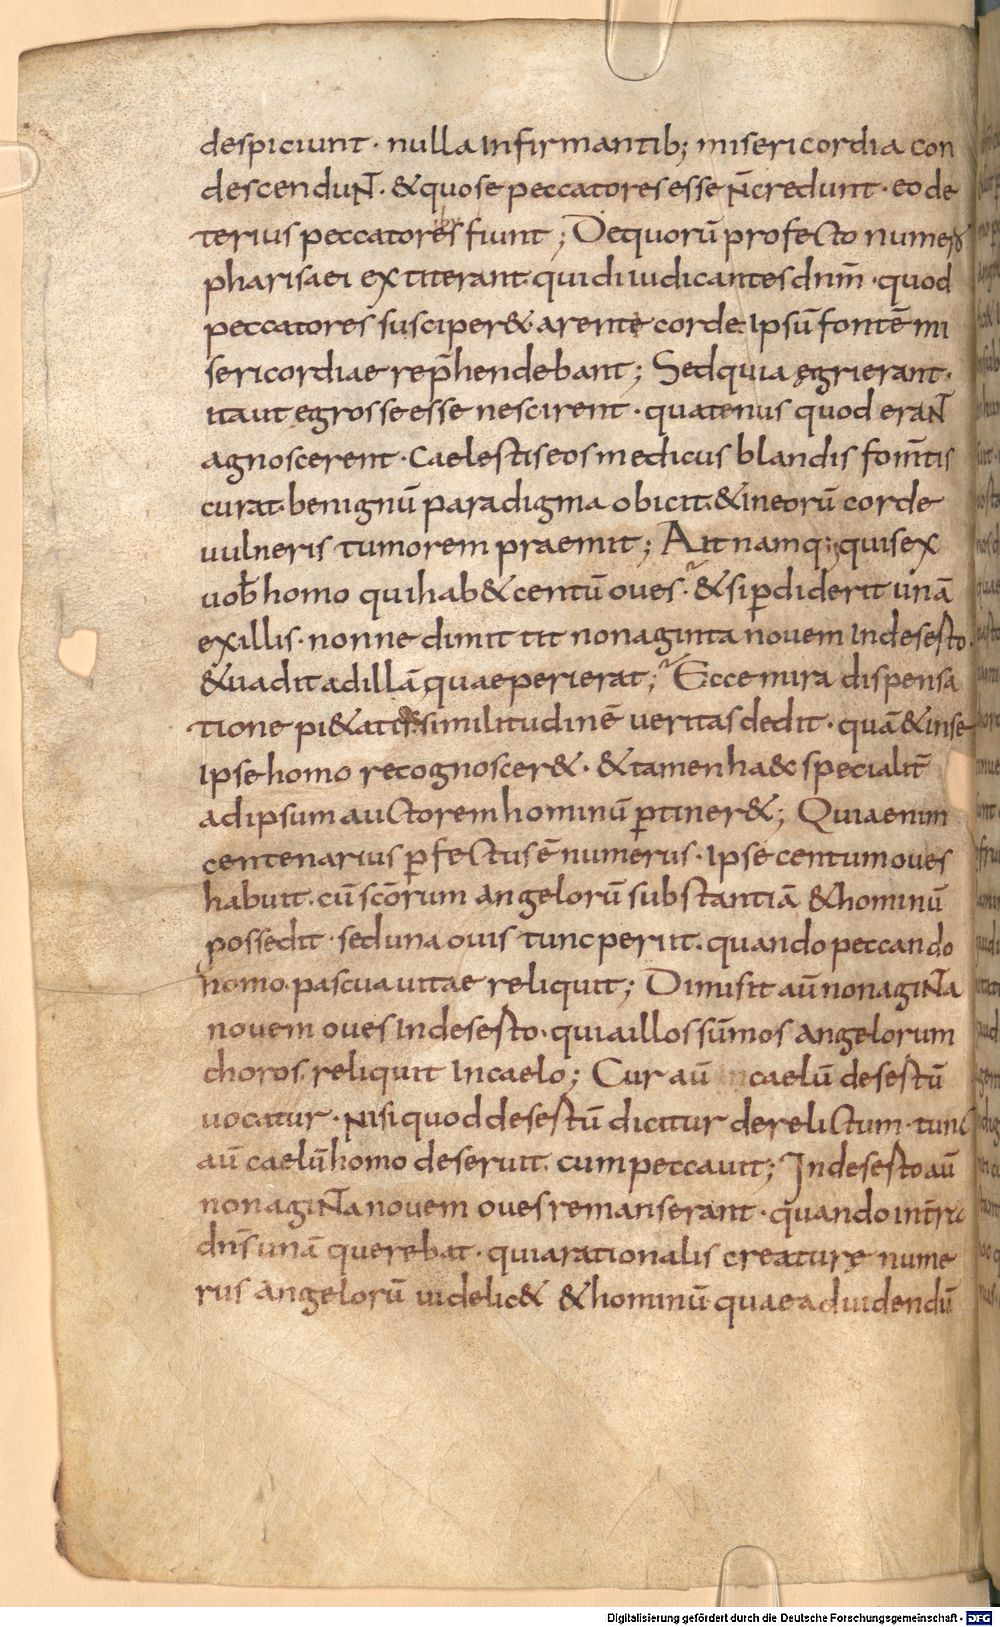 despiciunt · nulla Infirmantib; misericordia con
descenduNT · & quo se peccatores esse n̄ credunt · eo de
terius peccatores fiunt ; De quorū profecto numero
pharisaei extiterant · qui diiudicantes dnm̄ · quod
peccatores susciper& · arente corde · Ipsū fontē mi
sericordiae rep̄hendebant ; Sed quia ęgri erant ·
ita ut egros se esse nescirent · quatenus quod eraNT
agnoscerent · Caelestis eos medicus blandis fom̄tis
curat · benignū paradigma obicit · & in eorū corde
uulneris tumorem praemit ; Ait namq; quis ex
uob̄ homo qui hab& centū oues · & si ꝑdiderit unā
ex illis · nonne dimittit nonaginta nouem In deserto ·
& uadit ad illā quae perierat ; Ecce mira dispensa
tione pi&atis similitudinē ueritas dedit · quā & in se
Ipse homo recognoscer& · & tamen haec specialit̄
ad ipsum auctorem hominū ꝑtiner& ; Quia enim
centenarius ꝑfectus ē numerus · Ipse centum oues
habuit · cū scōrum angelorū substantiā & hominū
possedit · sed una ouis tunc periit · quando peccando
homo pascua uitae reliquit ; Dimisit aū nonagiNTa
nouem oues In deserto · quia illos sūmos angelorum
choros reliquit In caelo ; Cur aū caelū desertū
uocatur · Nisi quod desertū dicitur derelictum · tunc
aū caelū homo deseruit · cum peccauit ; In deserto aū
nonagiNTa nouem oues remanserant · quando in tr̄a
dn̄s unā querebat · quia rationalis creaturę nume
rus angelorū uidelic& & hominū quae ad uidendū
Digitalisierung gefördert durch die Deutsche Forschungsgemeinschaft - DFG